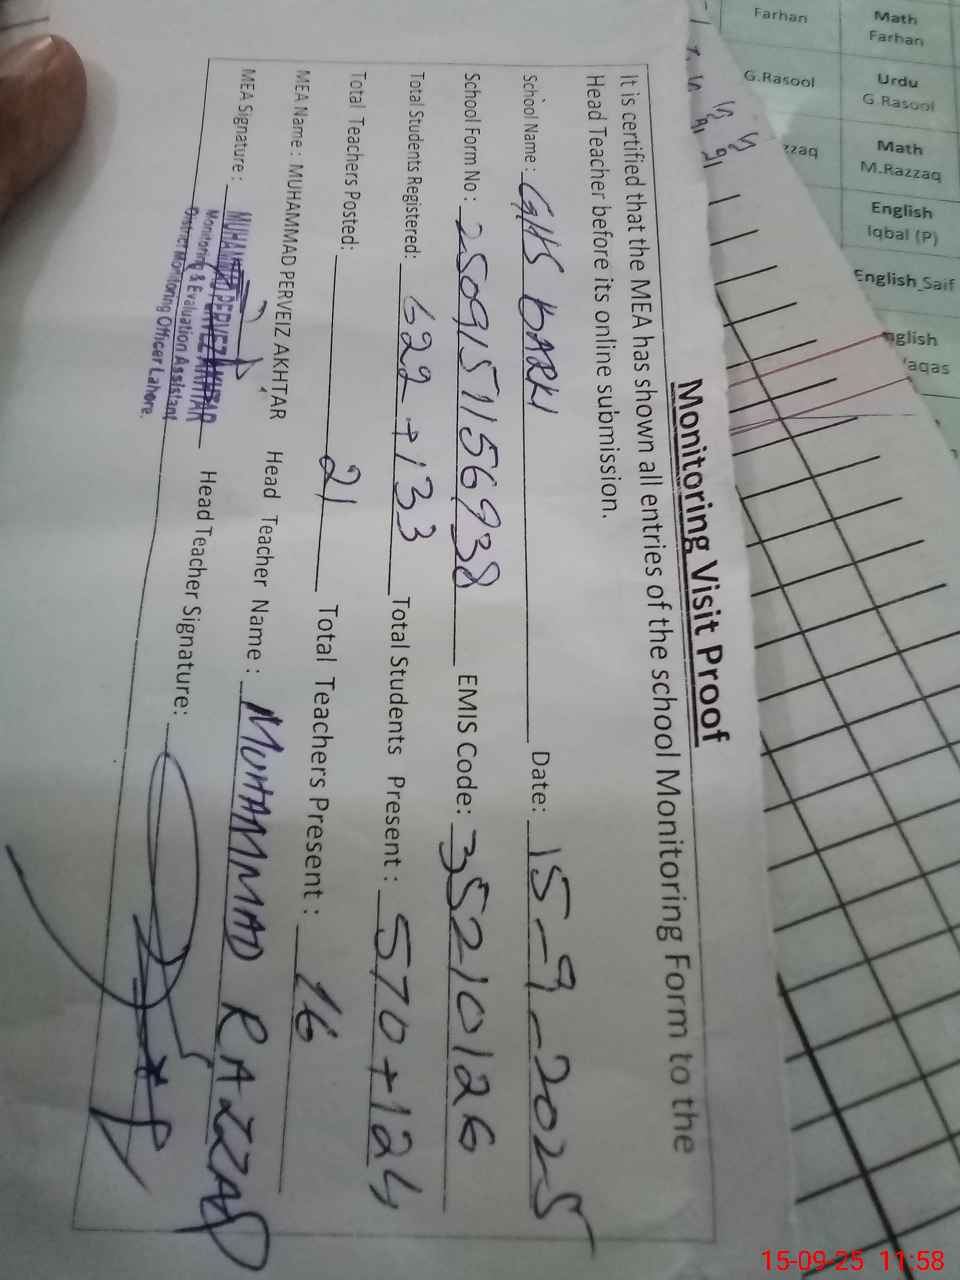 Monitoring Visit Proof
It is certified that the MEA has shown all entries of the school Monitoring Form to the
Head Teacher before its online submission.
School Name: GHS BARKI Date: 15-9-2025
School Form No: 2509157156938 EMIS Code: 35210126
Total Students Registered: 622+133 Total Students Present: 570+124
Total Teachers Posted: 21 Total Teachers Present: 16
MEA Name: MUHAMMAD PERVEIZ AKHTAR Head Teacher Name: MUHAMMAD RAZZAQ
MEA Signature: Head Teacher Signature:
MUHAMMAD PERVEIZ AKHTAR
Monitoring & Evaluation Assistant
District Monitoring Officer Lahore.
Farhan Math
Farhan
G.Rasool Urdu
G.Rasool
zzaq Math
M.Razzaq
English
Iqbal (P)
English Saif
nglish
aqas
15-09-25 11:58